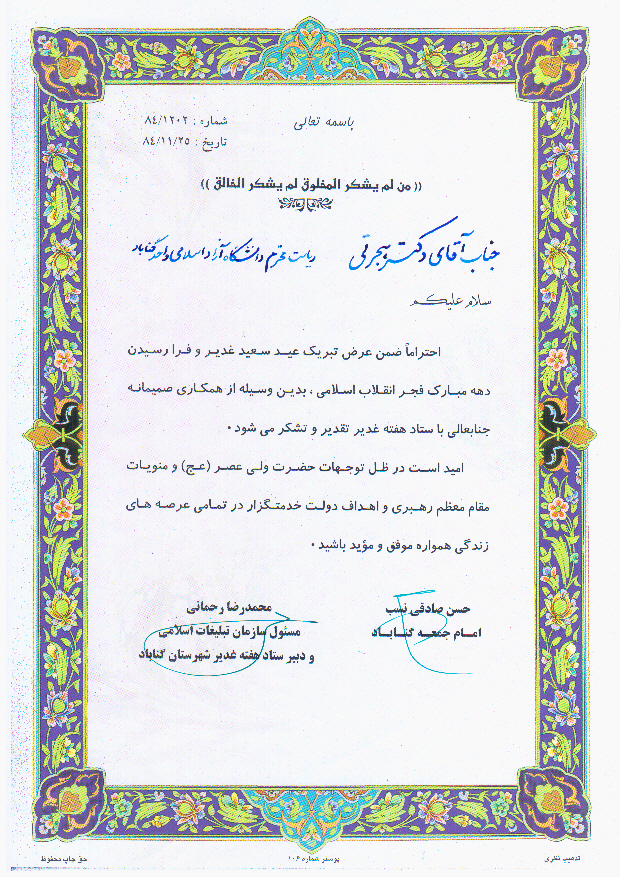 باسمه تعالی
شماره : ۸٤/۱۲۰۲
تاریخ : ۸٤/۱۱/۲۵
(( من لم یشکر المخلوق لم یشکر الخالق ))
جناب آقای دکتر هجرتی ریاست محترم دانشگاه آزاد اسلامی واحد گناباد
سلام علیکم
احتراماً ضمن عرض تبریک عید سعید غدیر و فرا رسیدن
دهه مبارک فجر انقلاب اسلامی ، بدین وسیله از همکاری صمیمانه
جنابعالی با ستاد هفته غدیر تقدیر و تشکر می شود .
امید است در ظل توجهات حضرت ولی عصر (عج) و منویات
مقام معظم رهبری و اهداف دولت خدمتگزار در تمامی عرصه های
زندگی همواره موفق و مؤید باشید .
حسن صادقی نسب
امام جمعه گناباد
محمدرضا رحمانی
مسئول سازمان تبلیغات اسلامی
و دبیر ستاد هفته غدیر شهرستان گناباد
تذهیب نظری
پوستر شماره ۱۰۶
حق چاپ محفوظ